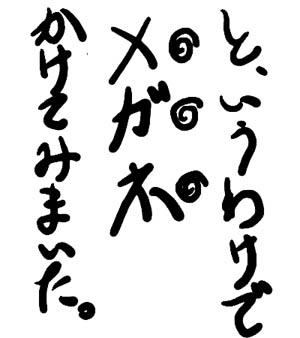 と、いうわけで
メガネ
かけてみまいた。